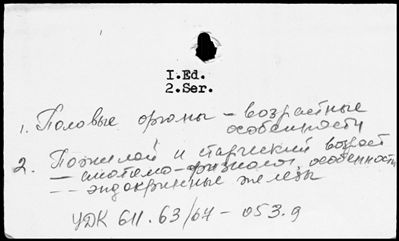 I.Ed.
2.Ser.
1. Половые органы – возрастные
особенности
2. Пожилой и старческий возраст
– анатомо-физиолог. особенности
– – эндокринные железы
УДК 611.63/67–053.9